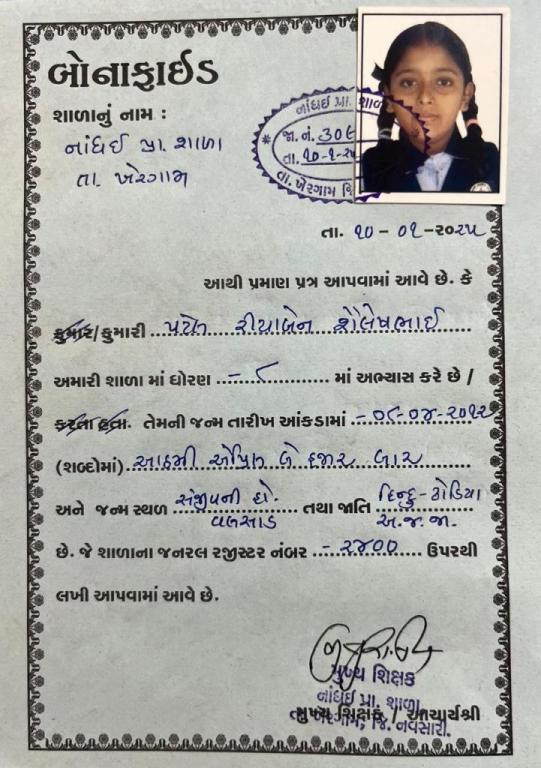 બોનાફાઈડ
શાળાનું નામ :
નાંધઈ પ્રા. શાળા
તા. ખેરગામ
નાંધઈ પ્રા. શાળ
જા. નં. ૩૦૯
તા. ૧૦-૧-૨૫
તા. ખેરગામ જિ
તા. ૧૦ - ૦૧ -૨૦૨૫
આથી પ્રમાણ પત્ર આપવામાં આવે છે. કે
કુમાર/કુમારી પટેલ રીયાબેન શૈલેષભાઈ
અમારી શાળા માં ધોરણ - ૮ માં અભ્યાસ કરે છે /
કરતા હતા. તેમની જન્મ તારીખ આંકડામાં -૦૮-૦૪-૨૦૧૨
(શબ્દોમાં) આઠમી એપ્રિલ બે હજાર બાર
અને જન્મ સ્થળ સંજીવની હો. વલસાડ તથા જાતિ હિન્દુ-ઢોડિયા અ.જ.જા.
છે. જે શાળાના જનરલ રજીસ્ટર નંબર - ૨૪૦૦ ઉપરથી
લખી આપવામાં આવે છે.
મુખ્ય શિક્ષક
નાંધઈ પ્રા. શાળા,
તા. ખેરગામ, જિ. નવસારી.
મુખ્ય શિક્ષક / આચાર્યશ્રી